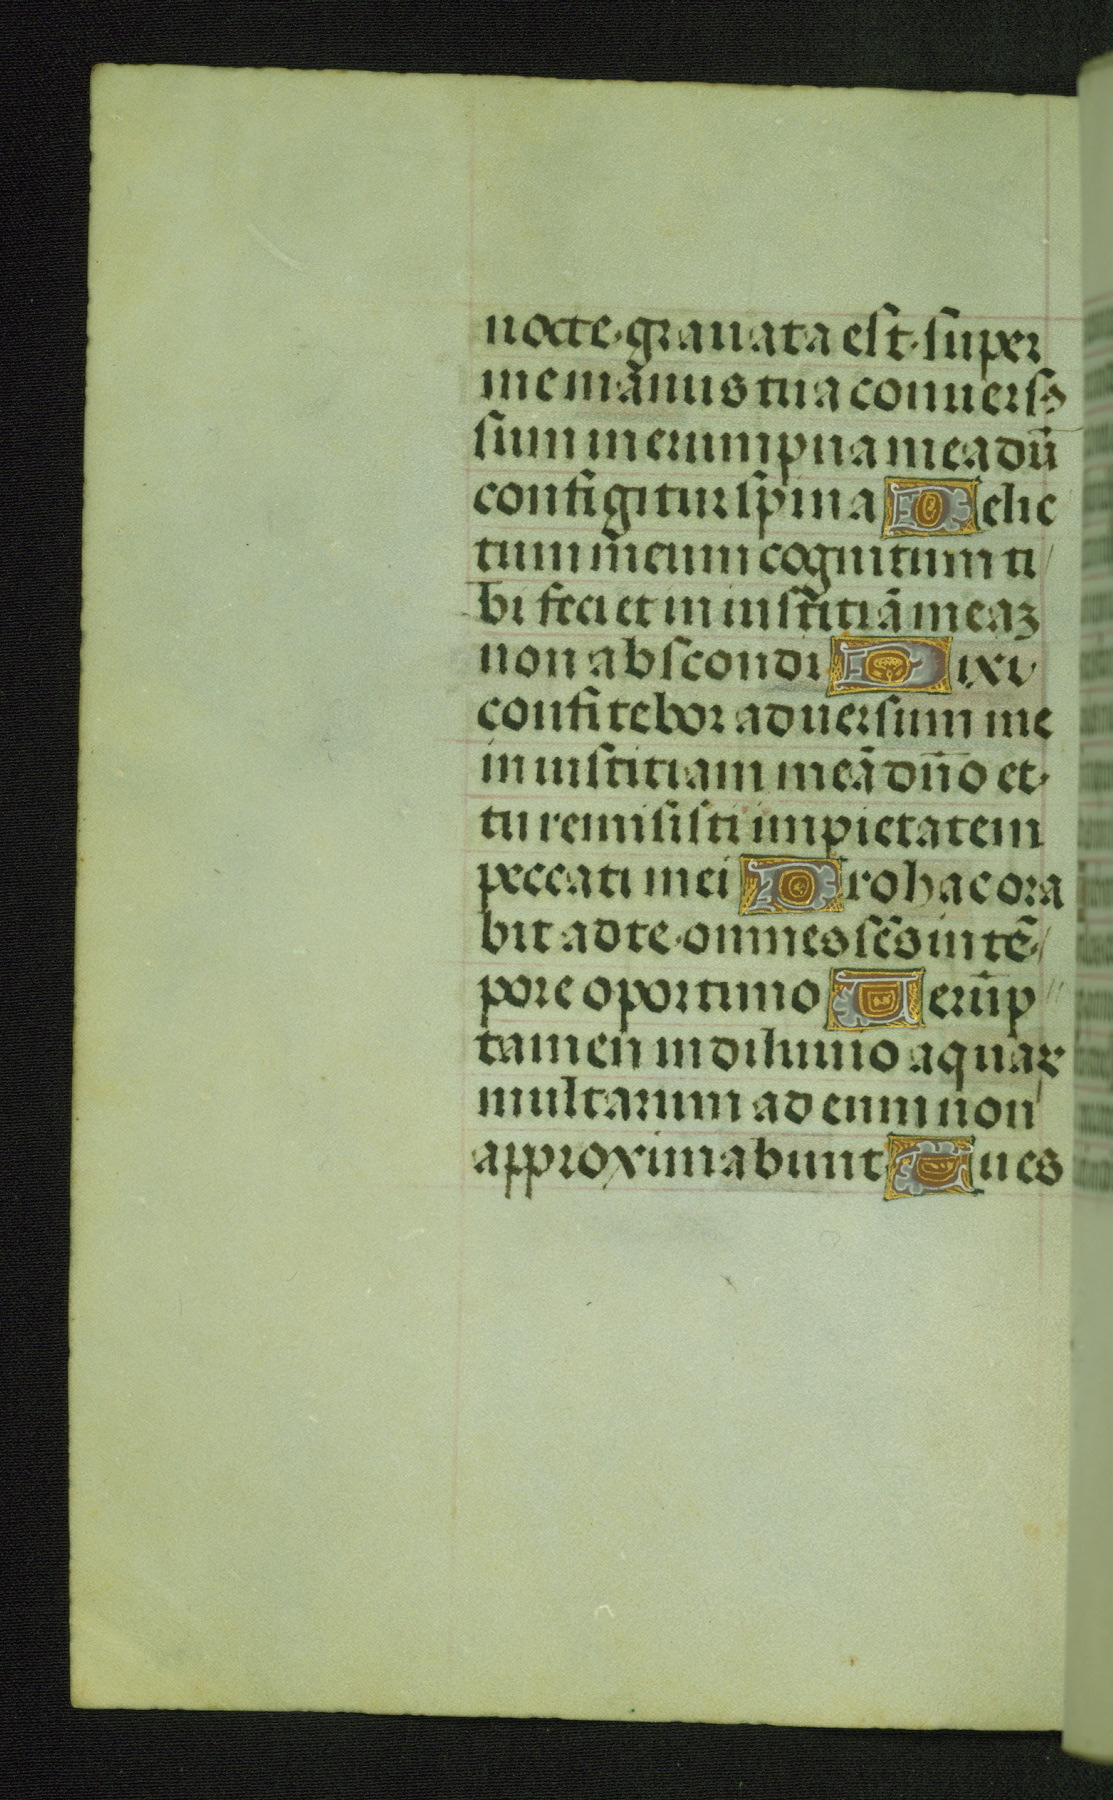 nocte·grauata est·super
me mãnus tua conuersꝰ
sum in erumpna mea dũ
configitur spina Delic
tum meum cognitum ti
bi feci et in iniusticiã meaz
non abscondi Dixi
confitebor aduersum me
iniusticiam meã dño et·
tu remisisti impietatem
peccati mei Pro hac ora
bit ad te·omnes sc̃s in tẽ
pore oportuno Uerũp
tamen in diluuio aquaꝝ
multarum ad eum non
approximabunt Tu es